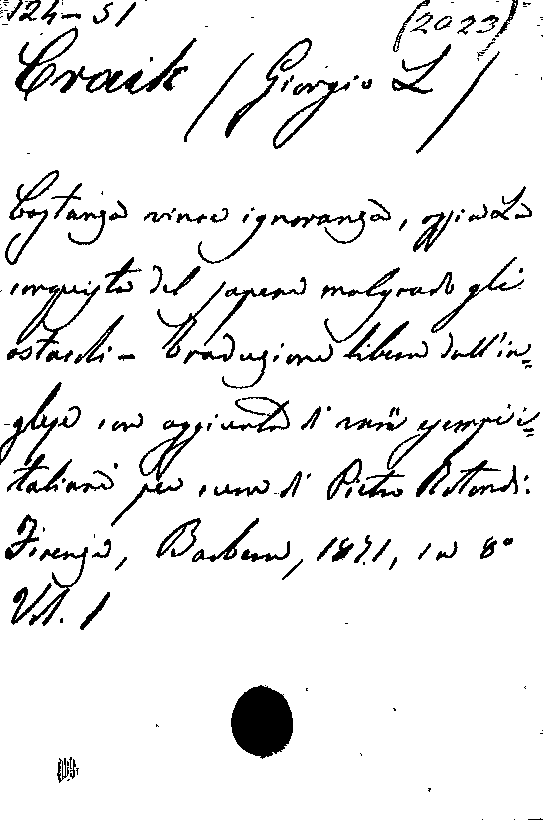 124-51 (2023)
Craik (Giorgio L)
Costanza vince ignoranza, ossia La
conquista del sapere malgrado gli
ostacoli - Traduzione libera dall'in=
glese con aggiunta di varii esempi i=
taliani per cura di Pietro Rotondi:
Firenze, Barbera, 1871, in 8°
Vol. 1